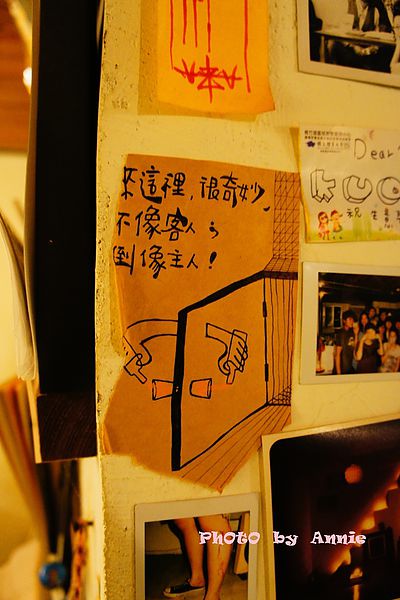 來這裡,很奇妙,
不像客人ㄋ
到像主人!
Dear
KUO
祝 生
Photo by Annie